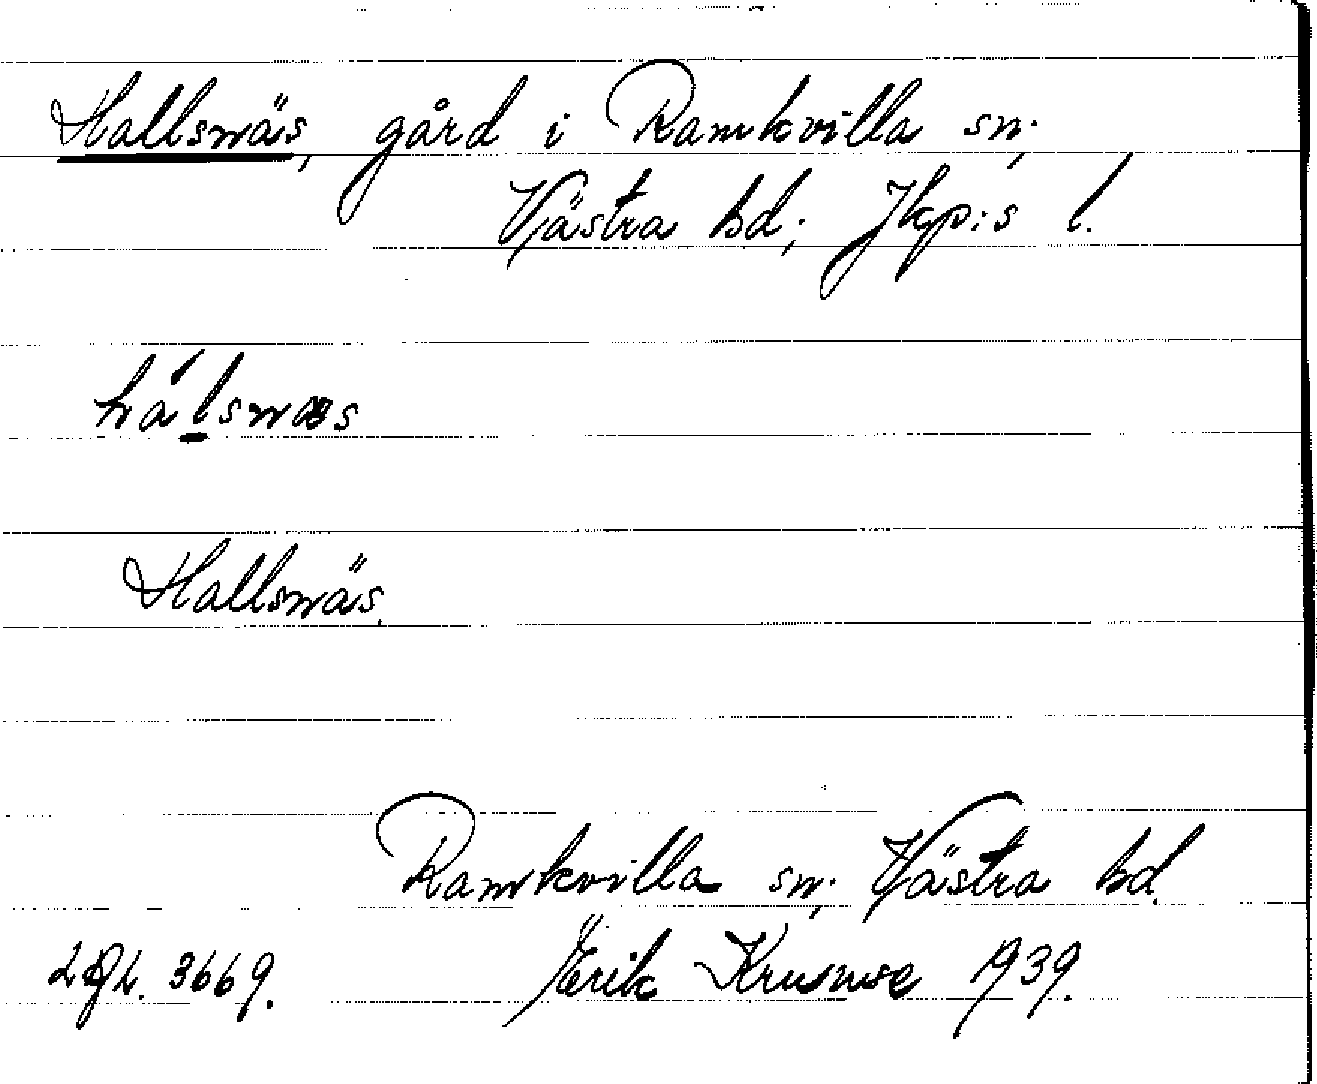 Hallsnäs, gård i Ramkvilla sn;
Västra hd; Jkp:s l.
hálsnæs
Hallsnäs.
Ramkvilla sn; Västra hd.
3669. Erik 1939.